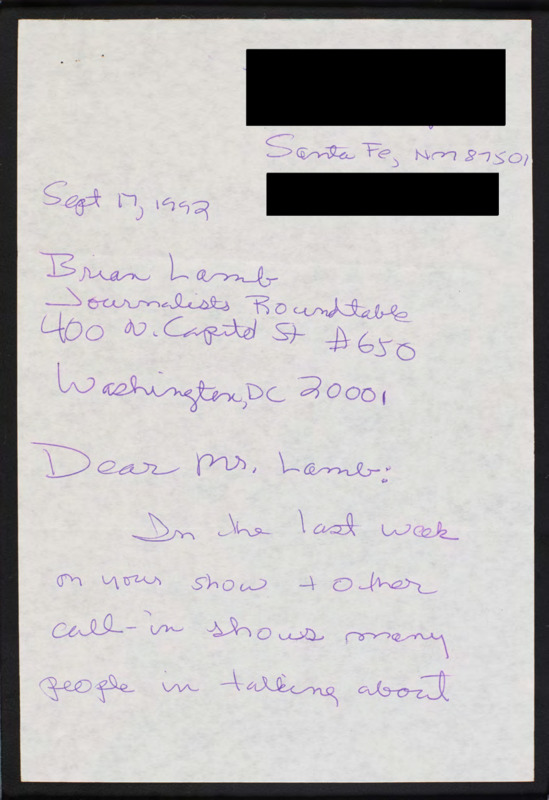 Santa Fe, NM 87501
Sept 17, 1992
Brian Lamb
Journalists Roundtable
400 N. Capitol St #650
Washington, DC 20001
Dear Mr. Lamb:
In the last week
on your show + other
call-in shows many
people in talking about